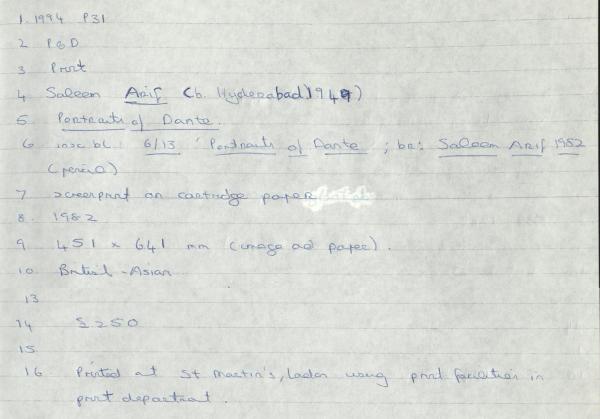 1. 1994 P31
2 P&D
3 Print
4 Saleem Arif (b. Hyderabad 1949)
5. Portraits of Dante.
6 insc bl: 6/13 'Portraits of Dante ; br: Saleem Arif 1982
(pencil)
7 screenprint on cartridge paper
8. 1982
9. 451 x 641 mm (image and paper).
10. British-Asian
13
14 £250
15.
16 Printed at St Martin's, London using print facilities in
print department.